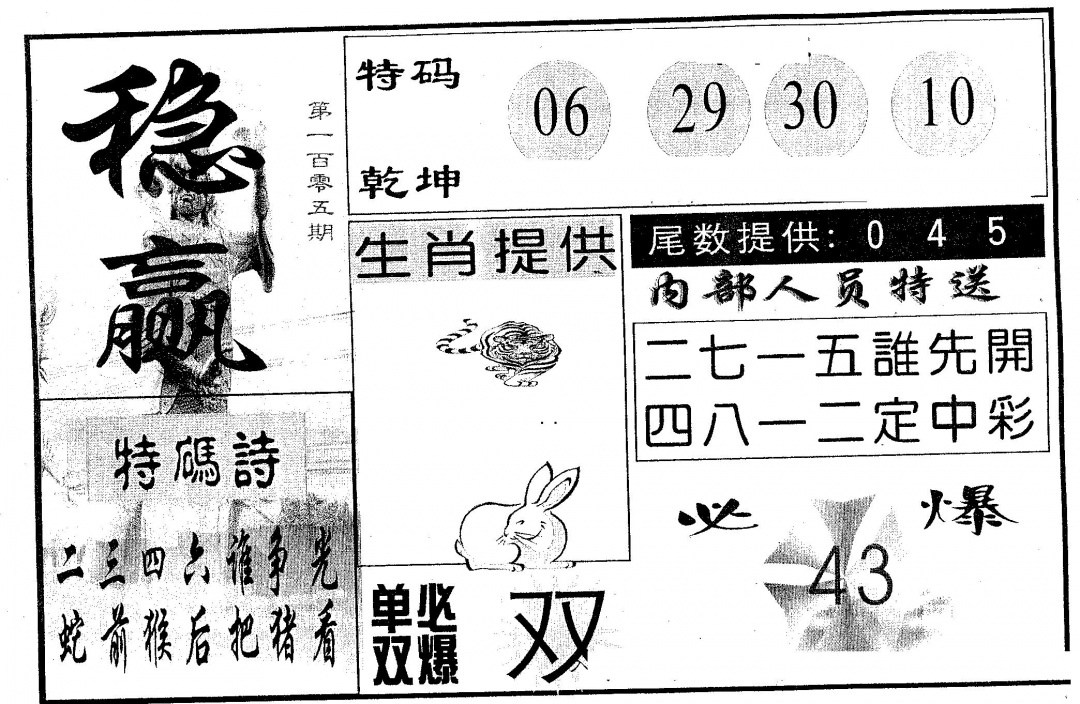 稳赢
第一百零五期
特码
乾坤
06 29 30 10
生肖提供
尾数提供: 0 4 5
内部人员特送
二七一五誰先開
四八一二定中彩
特碼詩
二三四六谁争光
蛇前猴后把猪看
单双必爆
双
必爆
43